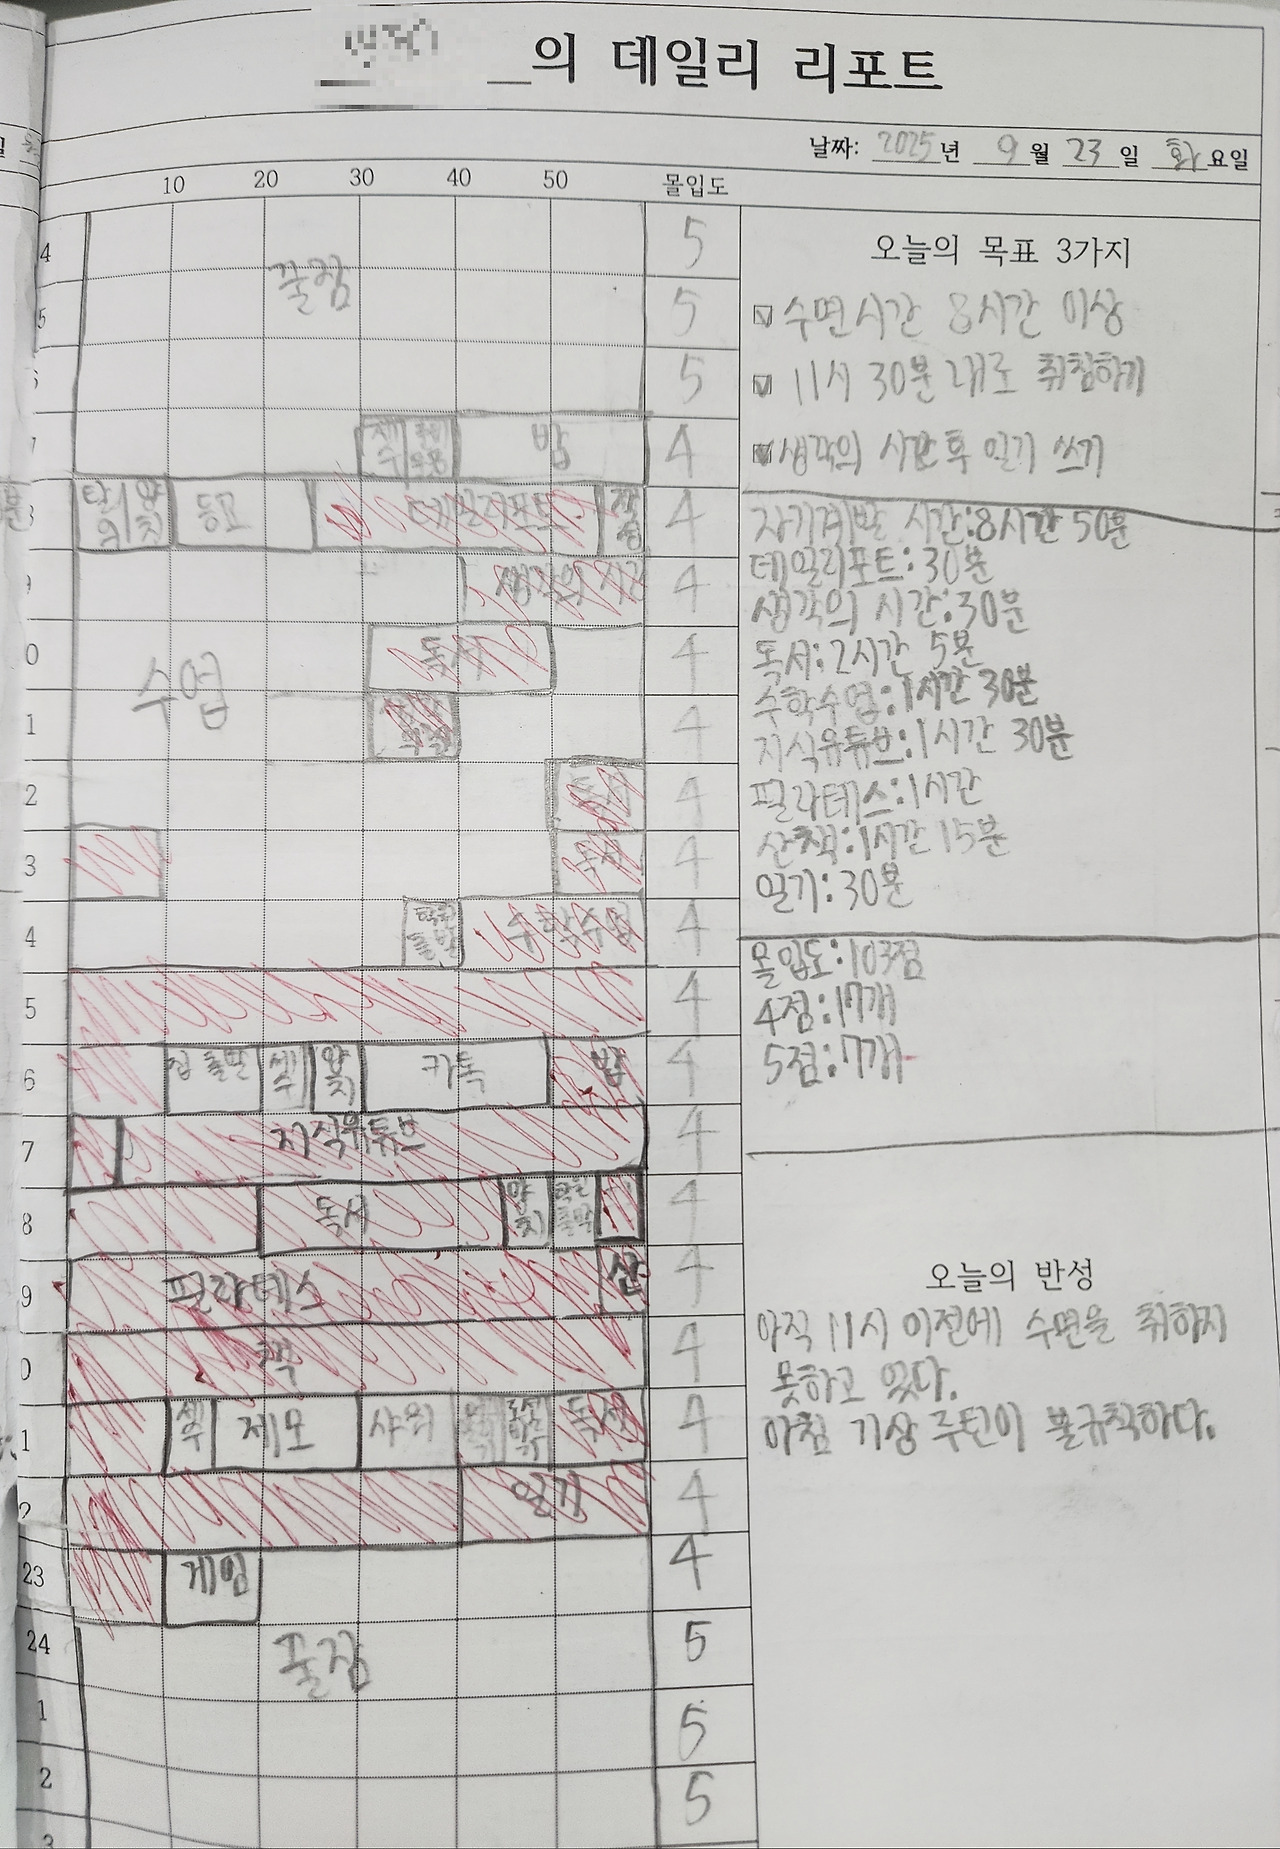 의 데일리 리포트
날짜: 2025년 9월 23일 화요일
10 20 30 40 50 몰입도
4 꿀잠 5
5 5
5
세수 밥 4
탄 양치 등교 데일리포트 4
생각의 시간 4
0 독서 4
수업
1 4
2 독서 4
3 독서 4
4 학원출발 수학수업 4
5 4
6 집 출발 세수 양치 카톡 밥 4
7 지식유튜브 4
8 독서 양치 학원출발 4
9 필라테스 산 4
0 책 4
1 세수 제모 샤워 독서 4
2 일기 4
23 게임 4
24 꿀잠 5
1 5
2 5
3
오늘의 목표 3가지
수면시간 8시간 이상
11시 30분 내로 취침하기
생각의 시간 후 일기 쓰기
자기계발 시간:8시간 50분
데일리포트:30분
생각의 시간:30분
독서:2시간 5분
수학수업:1시간 30분
지식유튜브:1시간 30분
필라테스:1시간
산책:1시간 15분
일기:30분
몰입도:103점
4점:17개
5점:7개
오늘의 반성
아직 11시 이전에 수면을 취하지
못하고 있다.
아침 기상 루틴이 불규칙하다.